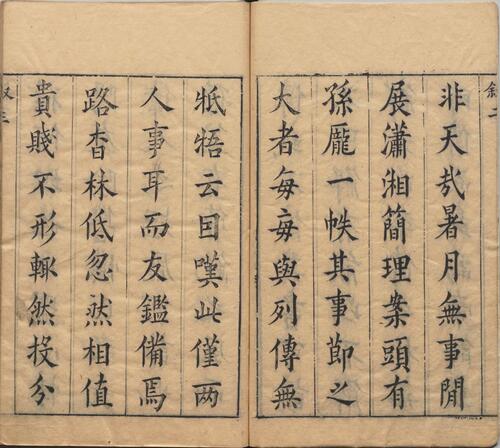 敘二
非天哉暑月無事閒
展瀟湘簡理案頭有
孫龐一帙其事節之
大者每每與列傳無
牴牾云因嘆此僅兩
人事耳而友鑑備焉
路杳林低忽然相值
貴賤不形輒然投分
叙三